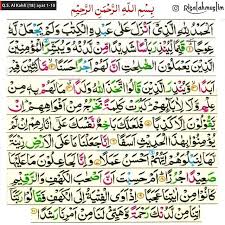 Q.S. Al Kahfi [18] ayat 1-10
بِسْمِ اللّٰهِ الرَّحْمٰنِ الرَّحِيْمِ
Risalahmuslim
اَلْحَمْدُ لِلّٰهِ الَّذِيْٓ اَنْزَلَ عَلٰى عَبْدِهِ الْكِتٰبَ وَلَمْ يَجْعَلْ لَّهٗ
عِوَجًا قَيِّمًا لِّيُنْذِرَ بَأْسًا شَدِيْدًا مِّنْ لَّدُنْهُ وَيُبَشِّرَ الْمُؤْمِنِيْنَ
الَّذِيْنَ يَعْمَلُوْنَ الصّٰلِحٰتِ اَنَّ لَهُمْ اَجْرًا حَسَنًا مّٰكِثِيْنَ فِيْهِ
اَبَدًا وَّيُنْذِرَ الَّذِيْنَ قَالُوا اتَّخَذَ اللّٰهُ وَلَدًا مَا لَهُمْ بِهٖ
مِنْ عِلْمٍ وَّلَا لِاٰبَآئِهِمْ كَبُرَتْ كَلِمَةً تَخْرُجُ مِنْ اَفْوَاهِهِمْ اِنْ
يَّقُوْلُوْنَ اِلَّا كَذِبًا فَلَعَلَّكَ بَاخِعٌ نَّفْسَكَ عَلٰٓى اٰثَارِهِمْ اِنْ لَّمْ
يُؤْمِنُوْا بِهٰذَا الْحَدِيْثِ اَسَفًا اِنَّا جَعَلْنَا مَا عَلَى الْاَرْضِ زِيْنَةً
لَّهَا لِنَبْلُوَهُمْ اَيُّهُمْ اَحْسَنُ عَمَلًا وَاِنَّا لَجٰعِلُوْنَ مَا عَلَيْهَا
صَعِيْدًا جُرُزًا اَمْ حَسِبْتَ اَنَّ اَصْحٰبَ الْكَهْفِ وَالرَّقِيْمِ
كَانُوْا مِنْ اٰيٰتِنَا عَجَبًا اِذْ اَوَى الْفِتْيَةُ اِلَى الْكَهْفِ فَقَالُوْا رَبَّنَآ
اٰتِنَا مِنْ لَّدُنْكَ رَحْمَةً وَّهَيِّئْ لَنَا مِنْ اَمْرِنَا رَشَدًا